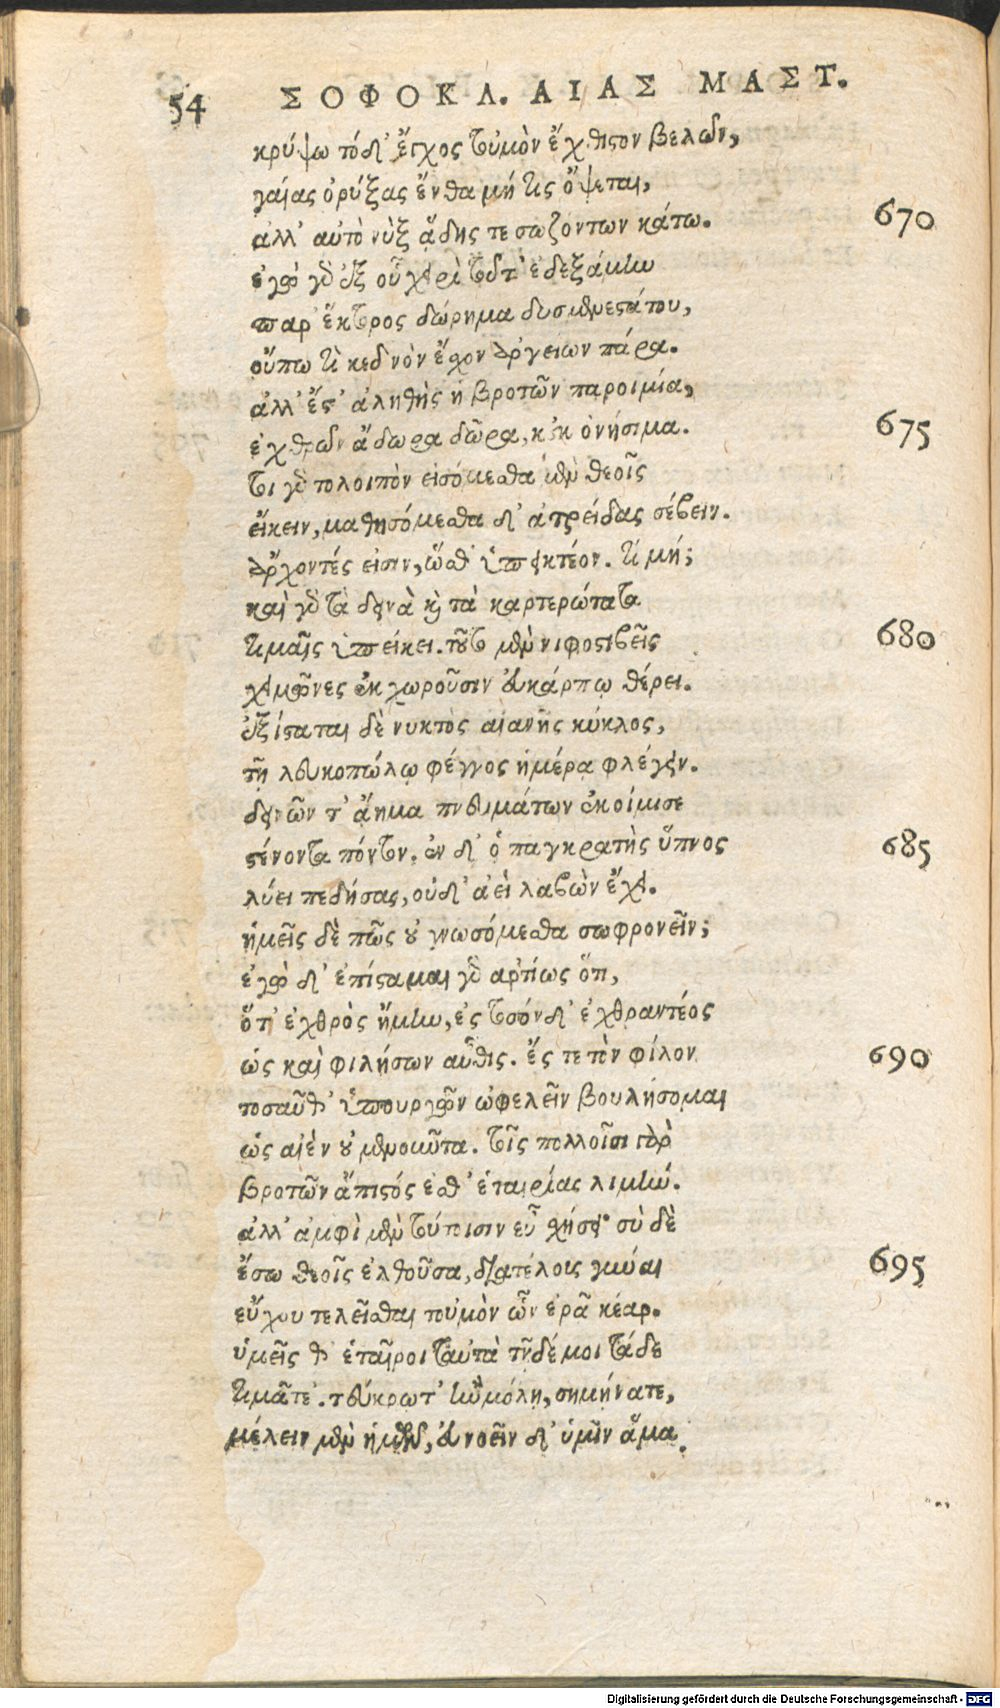 54 ΣΟΦΟΚΛ. ΑΙΑΣ ΜΑΣΤ.
κρύψω τόδ' ἔγχος τοὐμὸν ἔχθιστον βελῶν,
γαίας ὀρύξας ἔνθα μή τις ὄψεται,
ἀλλ' αὐτὸ νὺξ ᾅδης τε σωζόντων κάτω. 670
ἐγὼ γὸ ἐξ οὗ χειρὶ τοῦτ' ἐδεξάμην
παρ' ἕκτορος δώρημα δυσμενεστάτου,
οὔπω τὶ κεδνὸν ἔσχον ἀργείων πάρα.
ἀλλ' ἔστ' ἀληθὴς ἡ βροτῶν παροιμία,
ἐχθρῶν ἄδωρα δῶρα, κοὐκ ὀνήσιμα. 675
τοιγὸ τολοιπὸν εἰσόμεσθα μὲν θεοῖς
εἴκειν, μαθησόμεσθα δ' ἀτρείδας σέβειν.
ἄρχοντές εἰσιν, ὥσθ' ὑπεικτέον. τί μή;
καὶ γὸ τὰ δεινὰ καὶ τὰ καρτερώτατα
τιμαῖς ὑπείκει. τοῦτο μὲν νιφοστιβεῖς 680
χειμῶνες ἐκχωροῦσιν εὐκάρπῳ θέρει.
ἐξίσταται δὲ νυκτὸς αἰανῆς κύκλος,
τῇ λευκοπώλῳ φέγγος ἡμέρᾳ φλέγειν.
δεινῶν τ' ἄημα πνευμάτων ἐκοίμισε
στένοντα πόντον. ἐν δ' ὁ παγκρατὴς ὕπνος 685
λύει πεδήσας, οὐδ' ἀεὶ λαβὼν ἔχει.
ἡμεῖς δὲ πῶς οὐ γνωσόμεσθα σωφρονεῖν;
ἐγὼ δ' ἐπίσταμαι γὸ ἀρτίως ὅτι,
ὅτ' ἐχθρὸς ἤμην, ἐς τοσόνδ' ἐχθραντέος
ὡς καὶ φιλήσων αὖθις. ἔς τε τὸν φίλον 690
τοσαῦθ' ὑπουργῶν ὠφελεῖν βουλήσομαι
ὡς αἰὲν οὐ μενοῦντα. τοῖς πολλοῖσι γὰρ
βροτῶν ἄπιστός ἐσθ' ἑταιρίας λιμήν.
ἀλλ' ἀμφὶ μὲν τούτοισιν εὖ σχήσει σὺ δὲ
ἔσω θεοῖς ἐλθοῦσα, διατέλους γύναι 695
εὔχου τελεῖσθαι τοὐμὸν ὧν ἐρᾷ κέαρ.
ὑμεῖς θ' ἑταῖροι ταὐτὰ τῇδέ μοι τάδε
τιμᾶτε. τεύκρῳ τ' ἢν μόλῃ, σημήνατε,
μέλειν μὲν ἡμῶν, εὐνοεῖν δ' ὑμῖν ἅμα.
Digitalisierung gefördert durch die Deutsche Forschungsgemeinschaft - DFG